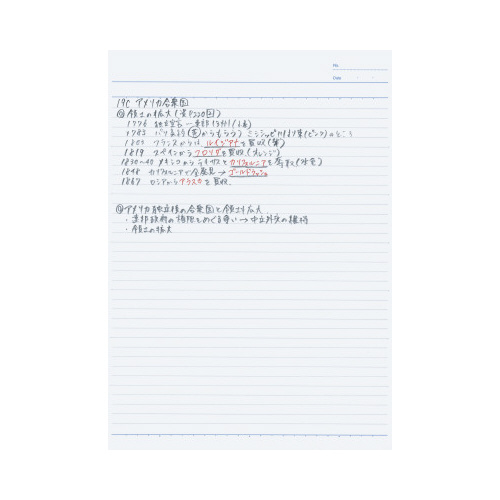 No.
Date
19C アメリカ合衆国
領土の拡大(P220図)
1776 独立宣言 ー 東部13州
1783 パリ条約(英からもらう)ミシシッピ川より東(ピンク)のところ
1803 フランスから ルイジアナを買収
1819 スペインからフロリダを買収(オレンジ)
1830〜40 メキシコから テキサスとカリフォルニアを
1848 カリフォルニアで金 → ゴールドラッシュ
1867 ロシアからアラスカを買収.
アメリカ独立後の合衆国と領土拡大
・連邦政府の権限をめぐる争い → 中立外交の維持
・領土の拡大